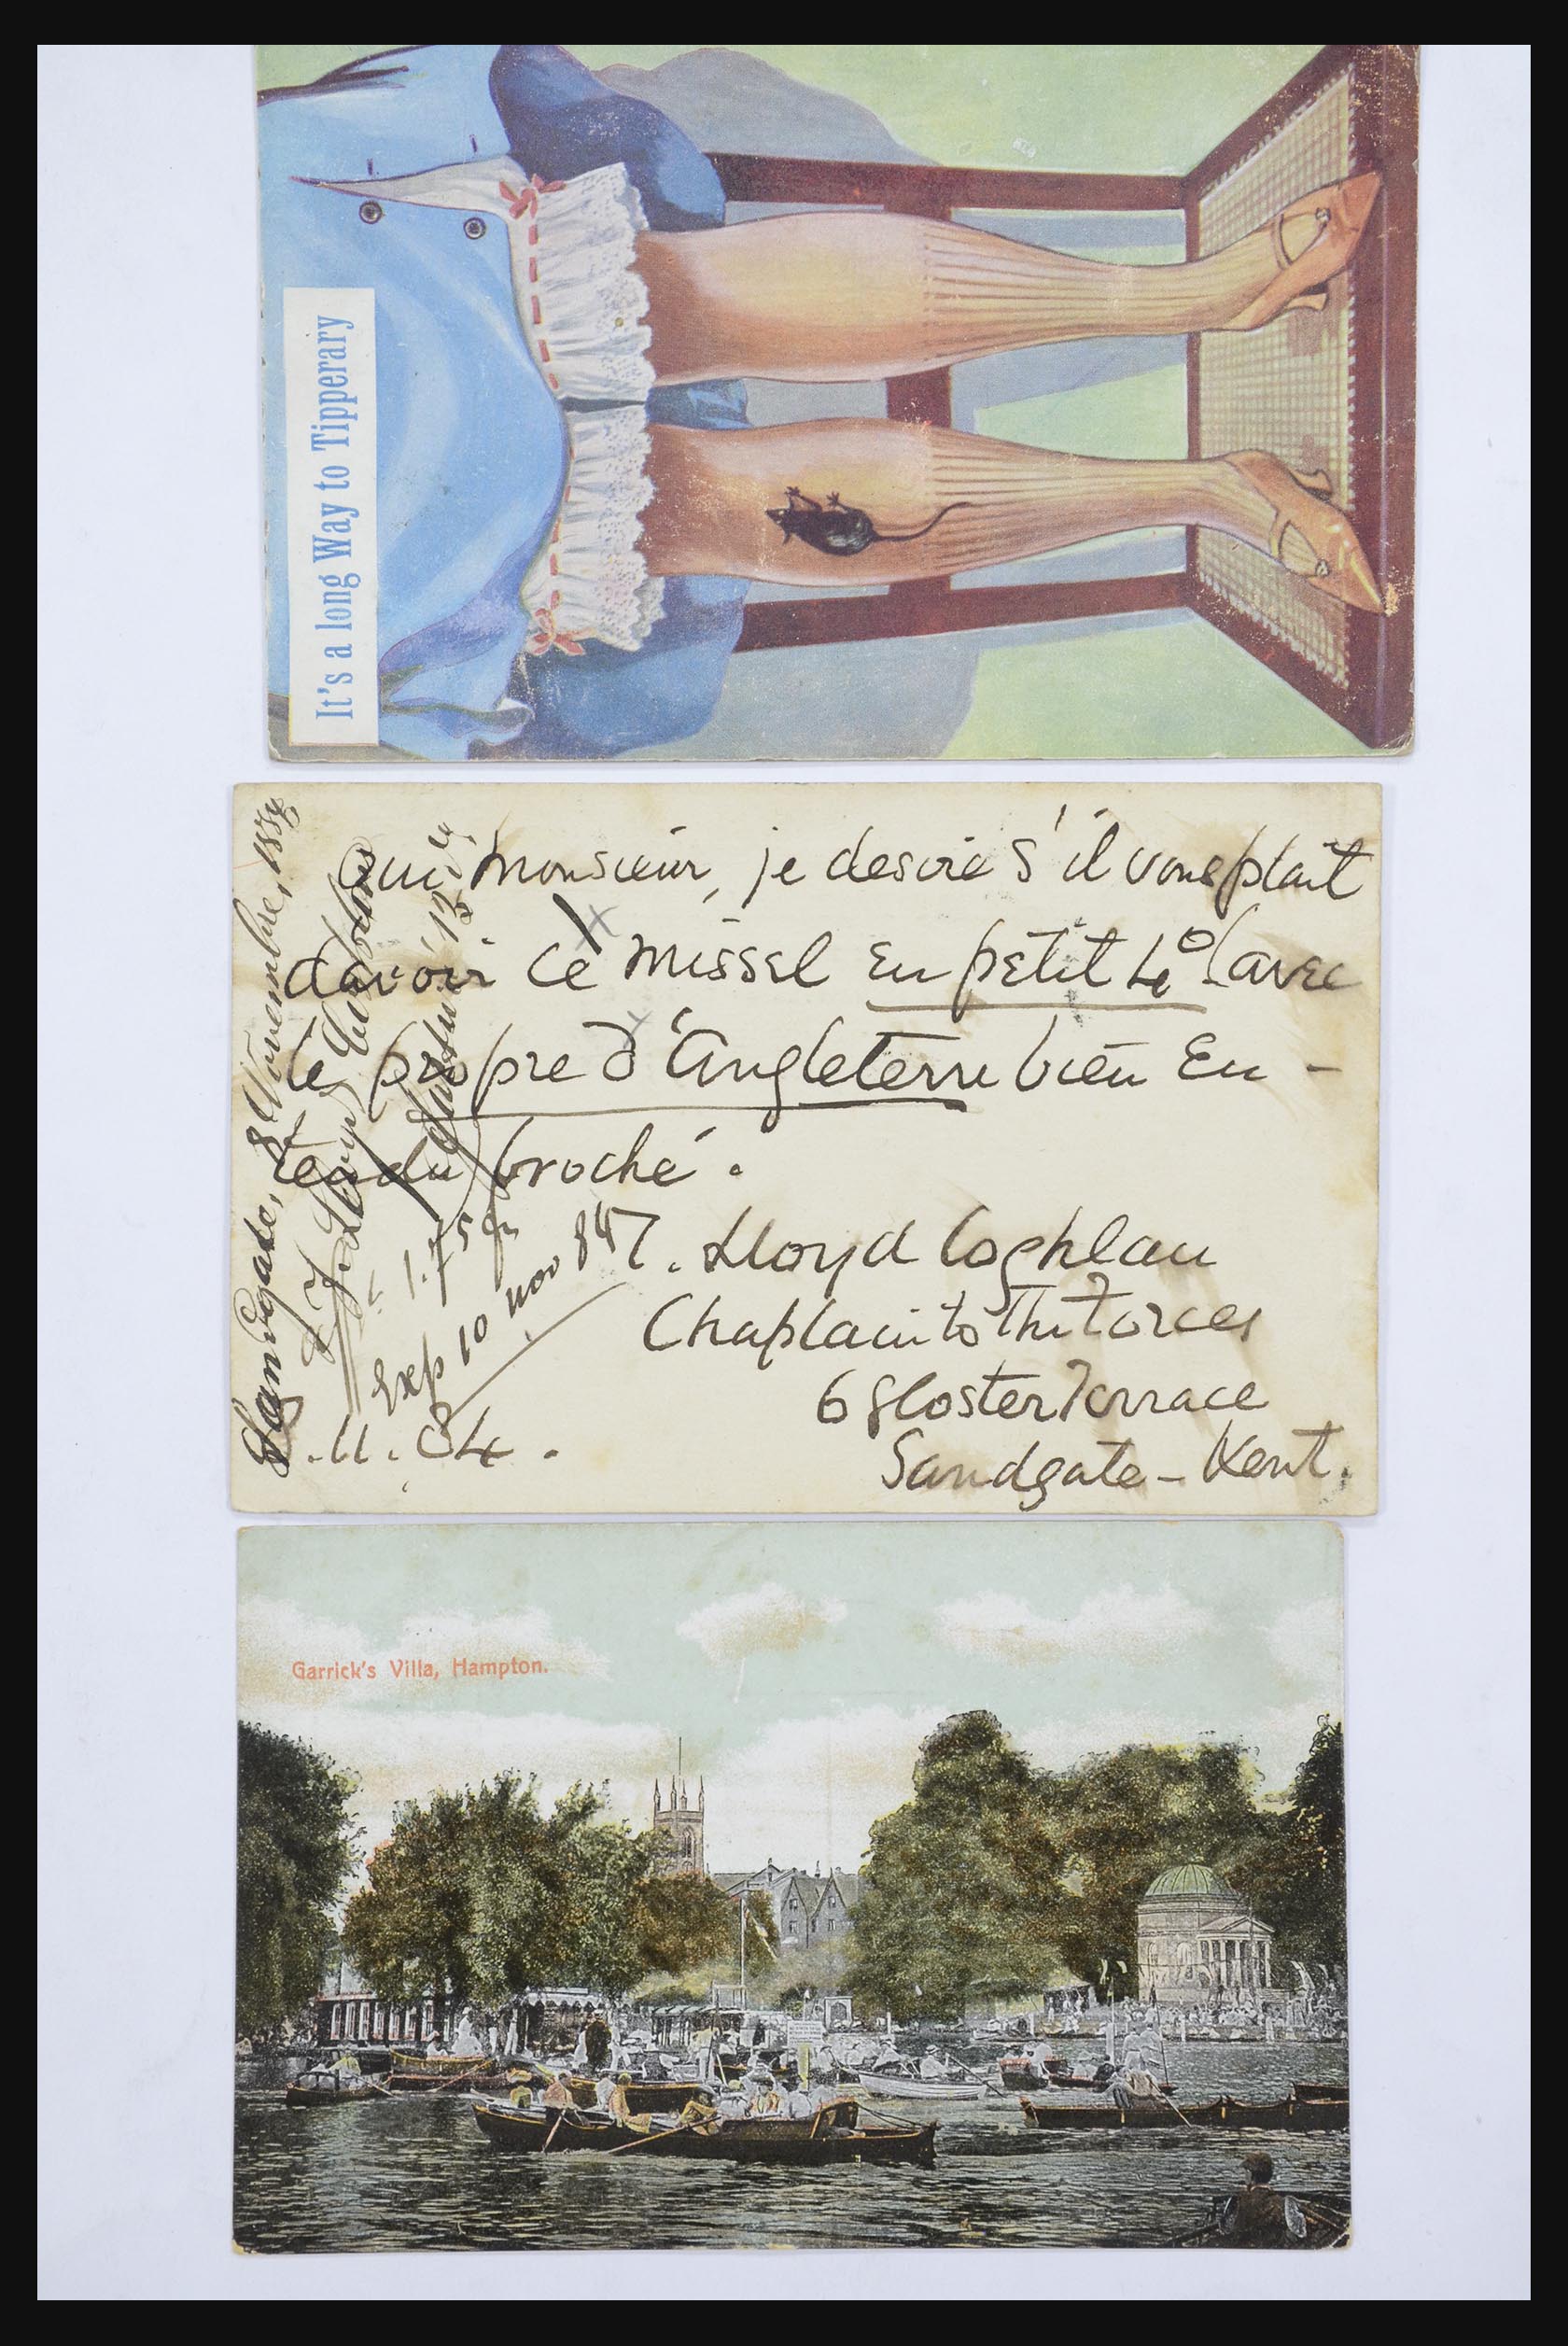 It's a long Way to Tipperary
Oui, Monsieur, je desire s'il vous plait
davoir ce missel en petit 4º (avec
le propre d'Angleterre bien en-
tendu broché.
T. Lloyd Coghlan
Chaplain to The Forces
6 Gloster Terrace
Sandgate - Kent.
.11.84.
Sandgate, 8 Novembre, 1884
Lloyd
1.75 fr
Exp 10 nov 84
Garrick's Villa, Hampton.